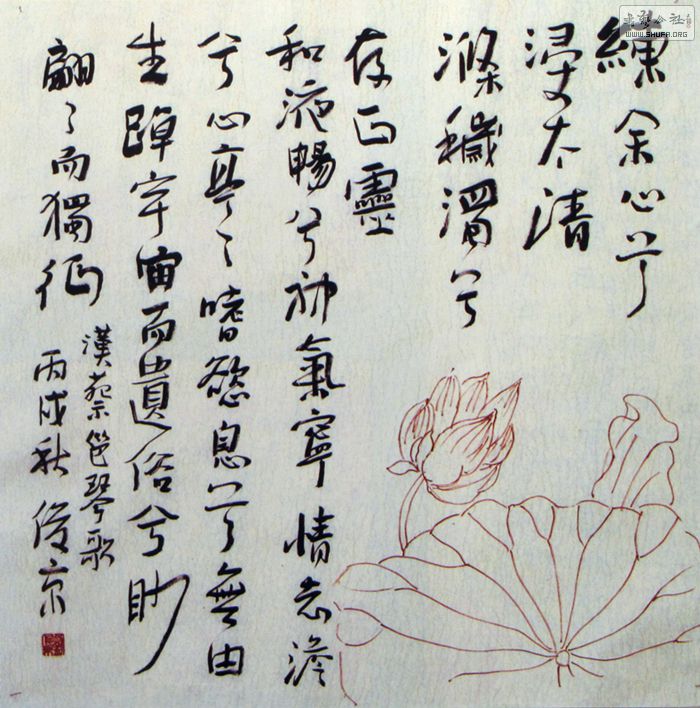 練余心兮
浸太清
滌穢濁兮
存正靈
和液暢兮神氣寧情志澹
兮心亭〻嗜慾息兮無由
生踔宇宙而遺俗兮眇
翩〻而獨征
漢蔡邕琴歌
丙戌秋俊京
公社
WWW.SHUFA.ORG